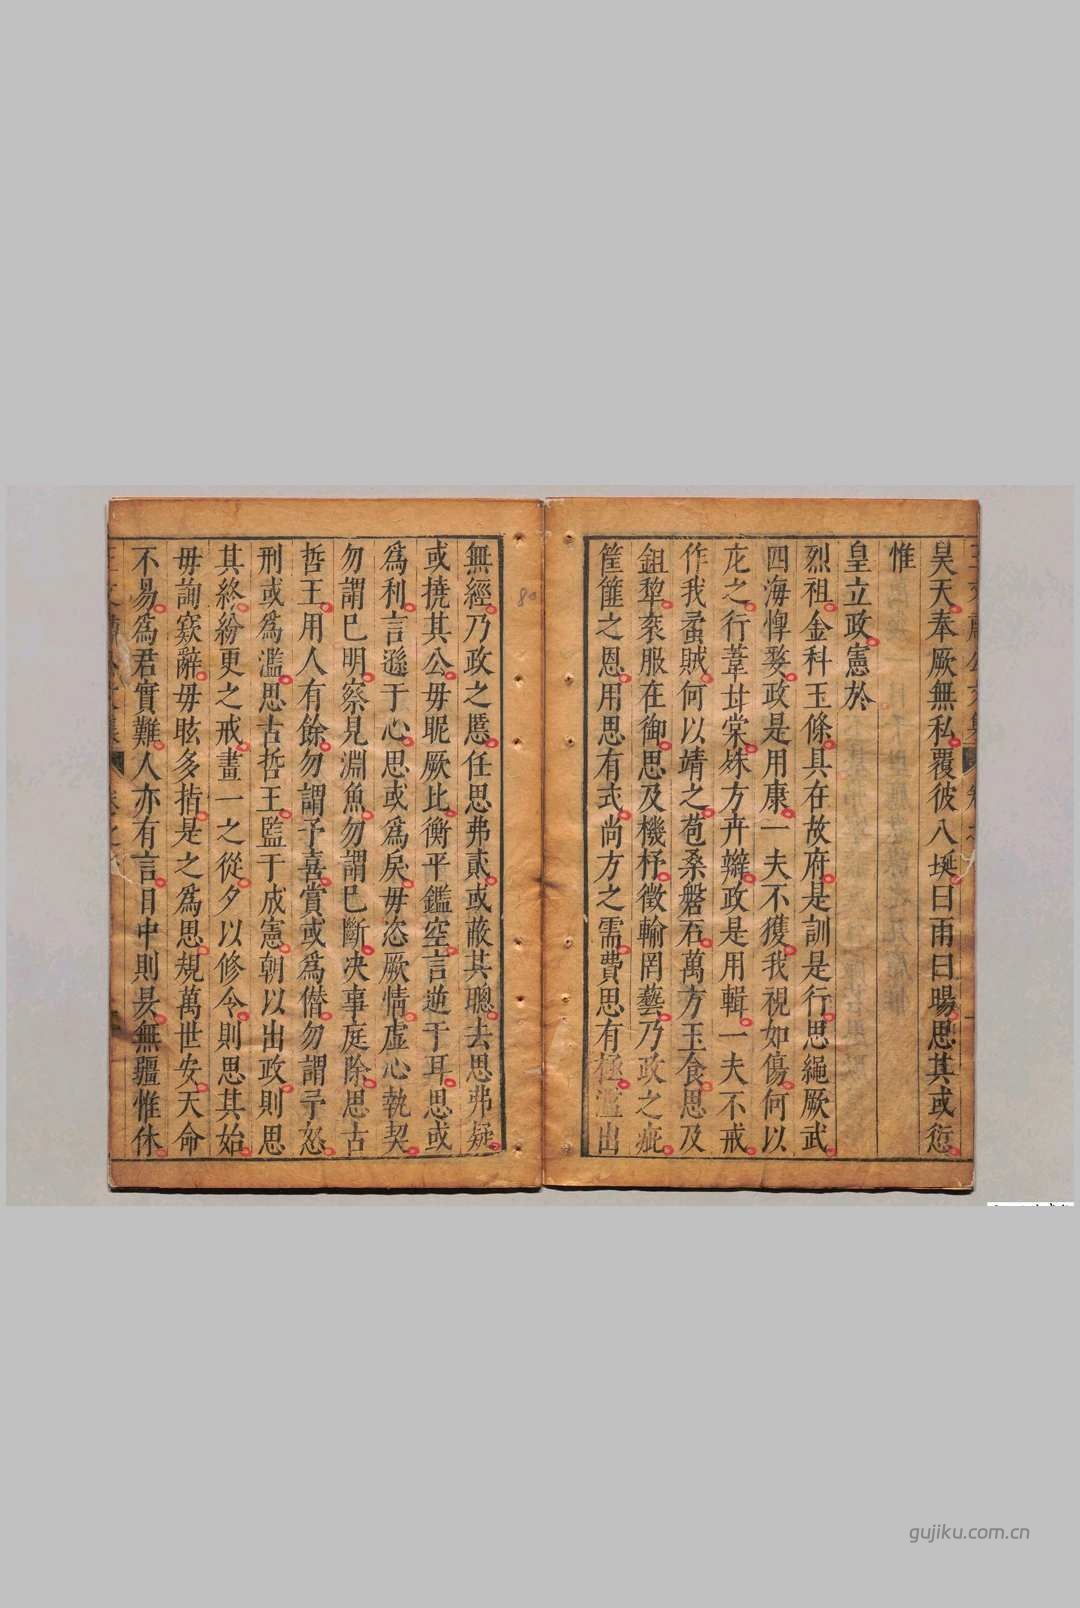 昊天奉厥無私覆彼八埏曰雨曰暘思其或愆
惟
皇立政憲於
烈祖金科玉條具在故府是訓是行思繩厥武
四海惸嫠政是用康一夫不獲我視如傷何以
庀之行葦甘棠姝方卉辮政是用輯一夫不戒
作我蝥賊何以靖之苞桑磐石萬方玉食思及
鉏犂衮服在御思及機杼徵輸罔藝乃政之疵
筐篚之恩用思有式尚方之需費思有極濫出
無經乃政之慝任思弗貳或蔽其聰去思弗疑
或撓其公毋昵厥比衡平鑑空言逆于耳思或
爲利言遜于心思或爲戾毋恣厥情虛心執契
勿謂已明察見淵魚勿謂已斷决事庭除思古
哲王用人有餘勿謂予喜賞或爲僭勿謂予怒
刑或爲濫思古哲王監于成憲朝以出政則思
其終紛更之戒畫一之從夕以修令則思其始
毋詢窾辭毋眩多指是之爲思規萬世安天命
不易爲君實難人亦有言日中則昃無疆惟休
80
gujiku.com.cn